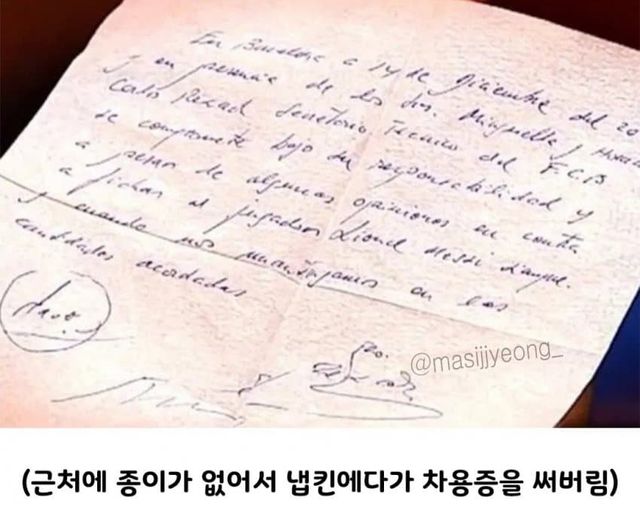 En Barcelona a 14 de Diciembre del 20
y en presencia de los Srs. Minguella y Horacio
Carlos Rexach Secretario Técnico del F.C.B
se compromete bajo su responsabilidad y
a pesar de algunas opiniones en contra
a fichar al jugador Lionel Messi siempre
y cuando nos mantengamos en las
cantidades acordadas
@masijjyeong_
(근처에 종이가 없어서 냅킨에다가 차용증을 써버림)